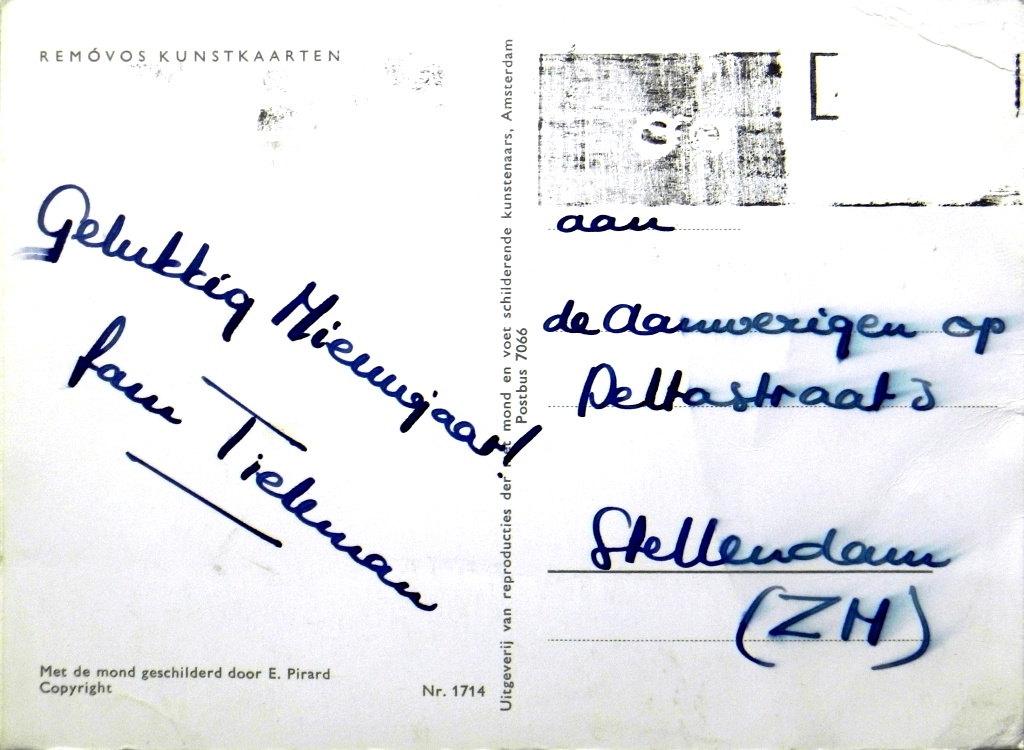 REMÓVOS KUNSTKAARTEN
Gelukkig Nieuwjaar!
fam Tieleman
Met de mond geschilderd door E. Pirard
Copyright
Nr. 1714
Uitgeverij van reproducties der met mond en voet schilderende kunstenaars, Amsterdam
Postbus 7066
aan
de aanwezigen op
Deltastraat 5
Stellendam
(ZH)